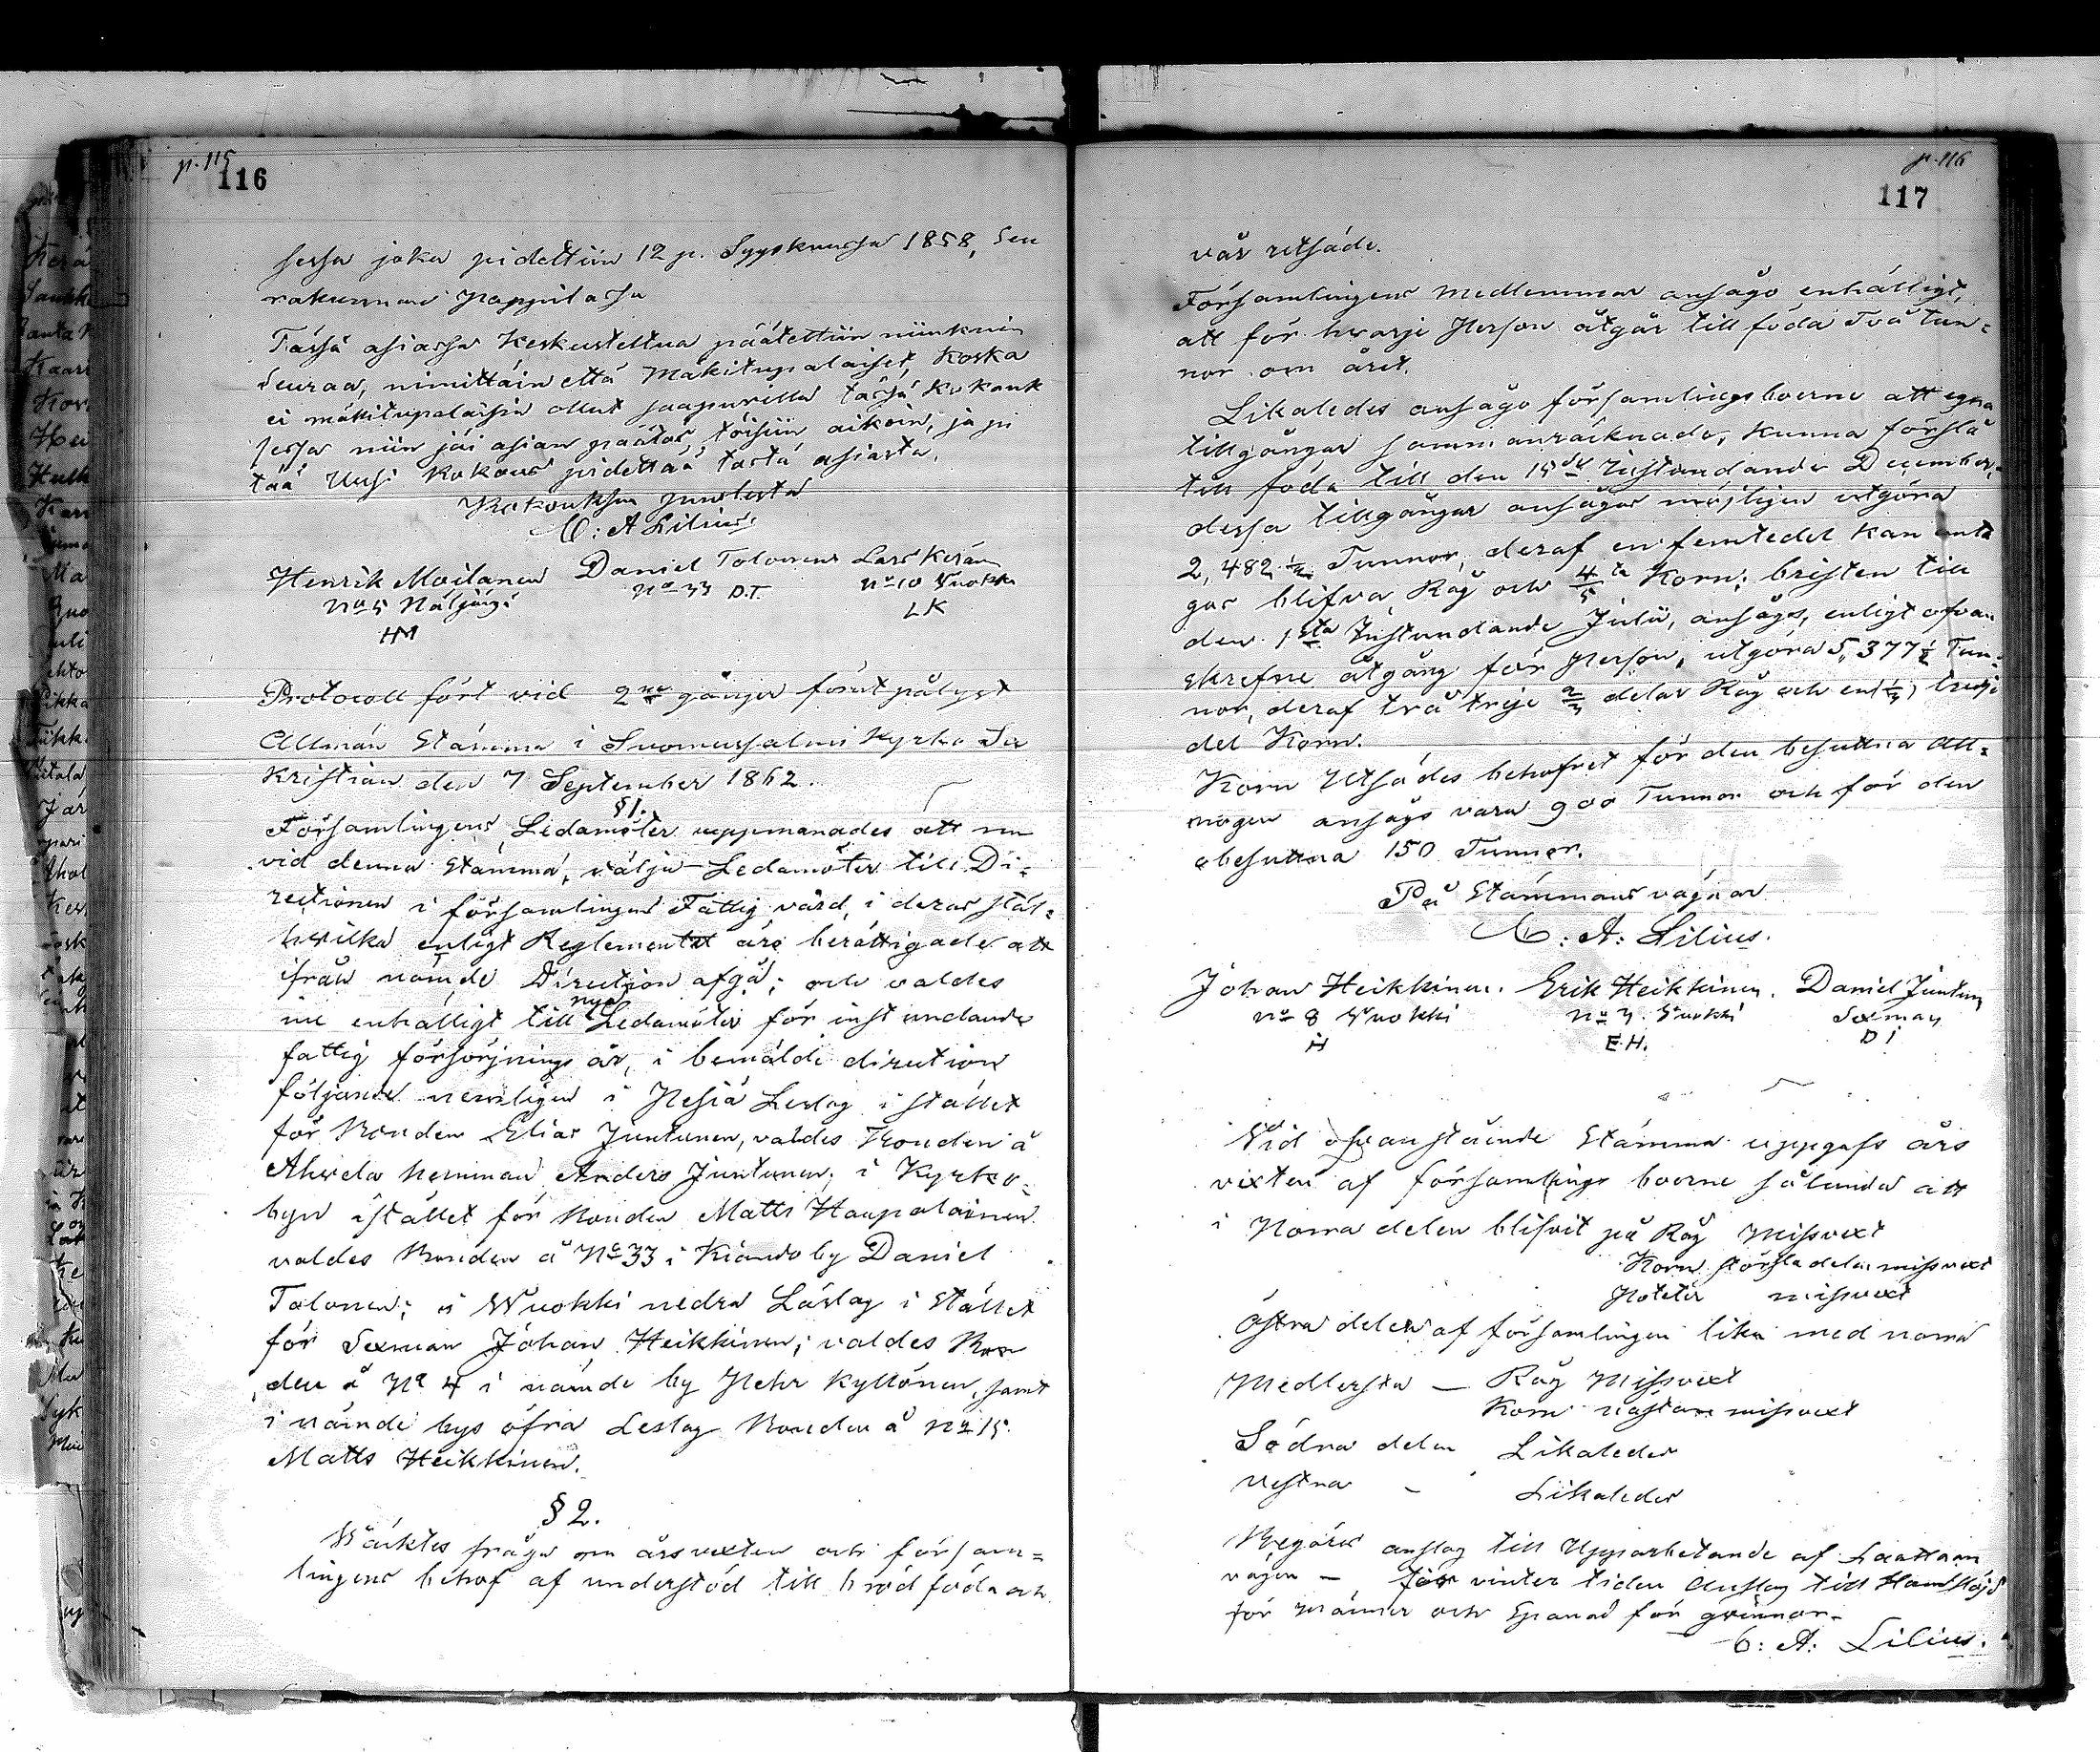 p. 115
116
sessa joka pidettiin 12 p. Syyskuussa 1858, Seu
rakunnan Pappilassa
Tässä asiassa Keskusteltua päätettiin niinkuin
Seuraa, nimittäin että Mäkitupalaiset, Koska
ei mäkitupalaisia ollut saapuvilla tässä Kokouk
sessa niin jäi asian päätös, töisiin aikoin, ja pi
tää Uusi Kokous pidettää tästä asiasta.
Kokouksen puolesta
C: A Lilius
Henrik Moilanen Daniel Tolonens Lars Kerän
No 5 Näljängö No 33 D.T. No 10 Vuokki
HM LK
Protocoll fört vid 2ne gånger förut pålyst
Allmän Stämma i Suomussalmi Kyrko Sa
kristian den 7 September 1862.
§ 1.
Församlingens Ledamöter uppmanades att nu
vid denna Stämma, välja Ledamöter till Di=
rectionen i församlingens Fattig vård, i deras stäl=
hvilka enligt Reglementet äro berättigade att
ifrån nämde Direction afgå; och valdes
nu enhälligt till nya Ledamöter för inst undande
fattig försörjnings år, i bemälde direction
följande nemligen i Pesiä Leslag i stället
för Bonden Elias Juntunen, valdes Bonden å
Ahvela hemman Anders Juntunen; i Kyrko=
byn istället för Bonden Matts Haapalainen
valdes Bonden å No 33 i Kianto by Daniel
Tolonen; i Wuokki nedra Läslag i Stället
för Sexman Johan Heikkinen; valdes Bon
den å No 4 i nämde by Pehr Kyllönen, samt
i nämde bys öfra Leslag Bonden å No 15
Matts Heikkinen.
§ 2.
Wäcktes fråga om årsvexten och försam=
lingens behof af understöd till brödföda och
p. 116
117
vår utsäde.
Församlingens Medlemmar ansågo enhälligt,
att för hvarje Person åtgår till föda Två tun=
nor om året.
Likaledes ansågo församlingsboerne att egna
tillgångar sammanräcknade, Kunna förslå
till föda till den 15de Instundande December,
dessa tillgångar ansågos möjligen utgöra
2,482 ½ Tunnor, deraf en femtedel Kan anta
gas blifva Råg och 4/5 te Korn; bristen till
den 1sta Instundande Julii, ansågs, enligt ofvan
skrefne åtgång för Person, utgöra 5,377 ½ Tun=
nor, deraf två trije 2/3 delar Råg och en (1/3) tredje
del Korn.
Korn Utsädes behofvet för den besuttna All=
mogen ansågs vara 900 Tunnor och för den
obesuttna 150 Tunnor.
På Stämmans vägnar
C: A: Lilius.
Johan Heikkinen. Erik Heikkinen. Daniel Juntun
No 8 Vuokki No 7. Vuokki Sexman
H E.H. D J
Vid ofvanstående Stämma uppgafs års
vexten af församlings boerne sålunda att
i Norra delen blifvit på Råg Missvext
Korn största delen missvext
Poteter missvext
Östra delen af församlingen lika med norra
Medlersta — Råg Missvext
Korn nästan missvext
Södra delen Likaledes
Vestra - Likaledes
Begäres anslag till Upparbetande af
vägen — för vinter tiden Anslag till Handslöjd
för Männer och Spanad för qvinnor.
C: A: Lilius.